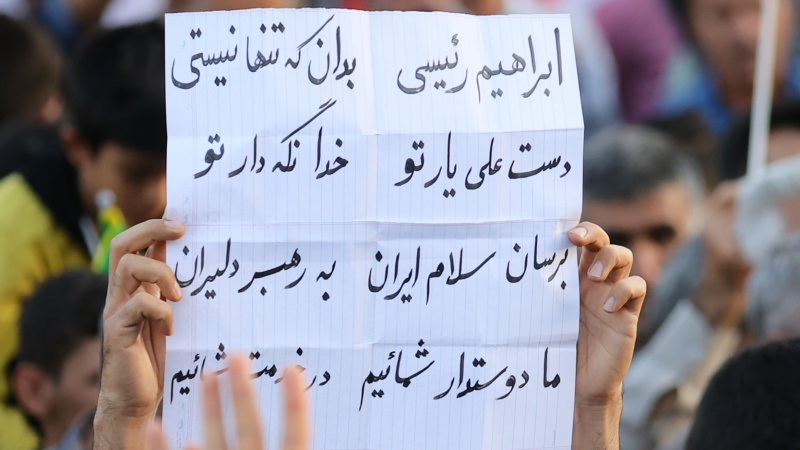 ابراهیم رئیسی بدان که تنها نیستی
دست علی یار تو خدا نگه دار تو
برسان سلام ایران به رهبر دلیران
ما دوستدار شمائیم در خدمت شمائیم